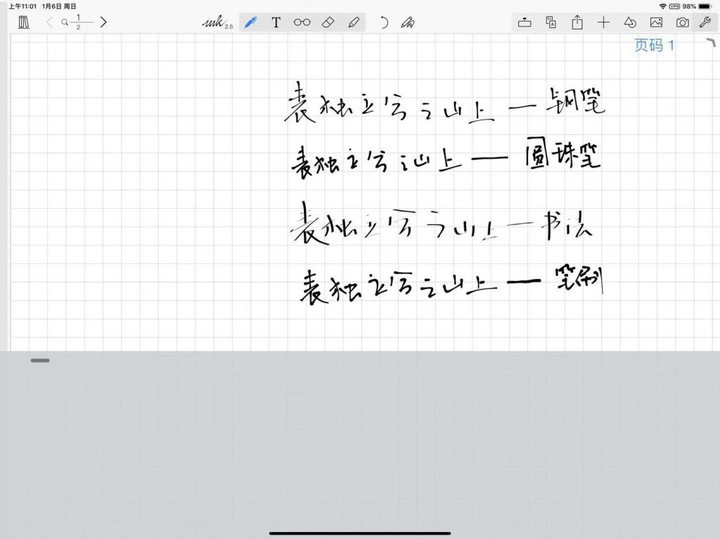 上午11:01 1月6日 周日 98%
1
2
2.5
T
页码 1
表独立兮之山上 — 钢笔
表独立兮之山上 — 圆珠笔
表独立兮之山上 — 书法
表独立兮之山上 — 笔刷